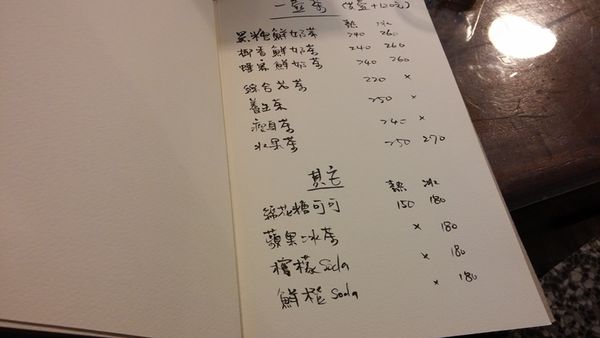 一壺茶 (黃金+120元)
熱 冰
黑糖鮮奶茶 240 260
椰香鮮奶茶 240 260
蜂蜜鮮奶茶 240 260
綜合花茶 220 ×
養生茶 250 ×
瘦身茶 240 ×
水果茶 250 270
其它
熱 冰
綿花糖可可 150 180
蘋果冰茶 × 180
檸檬Soda × 180
鮮橙Soda × 180